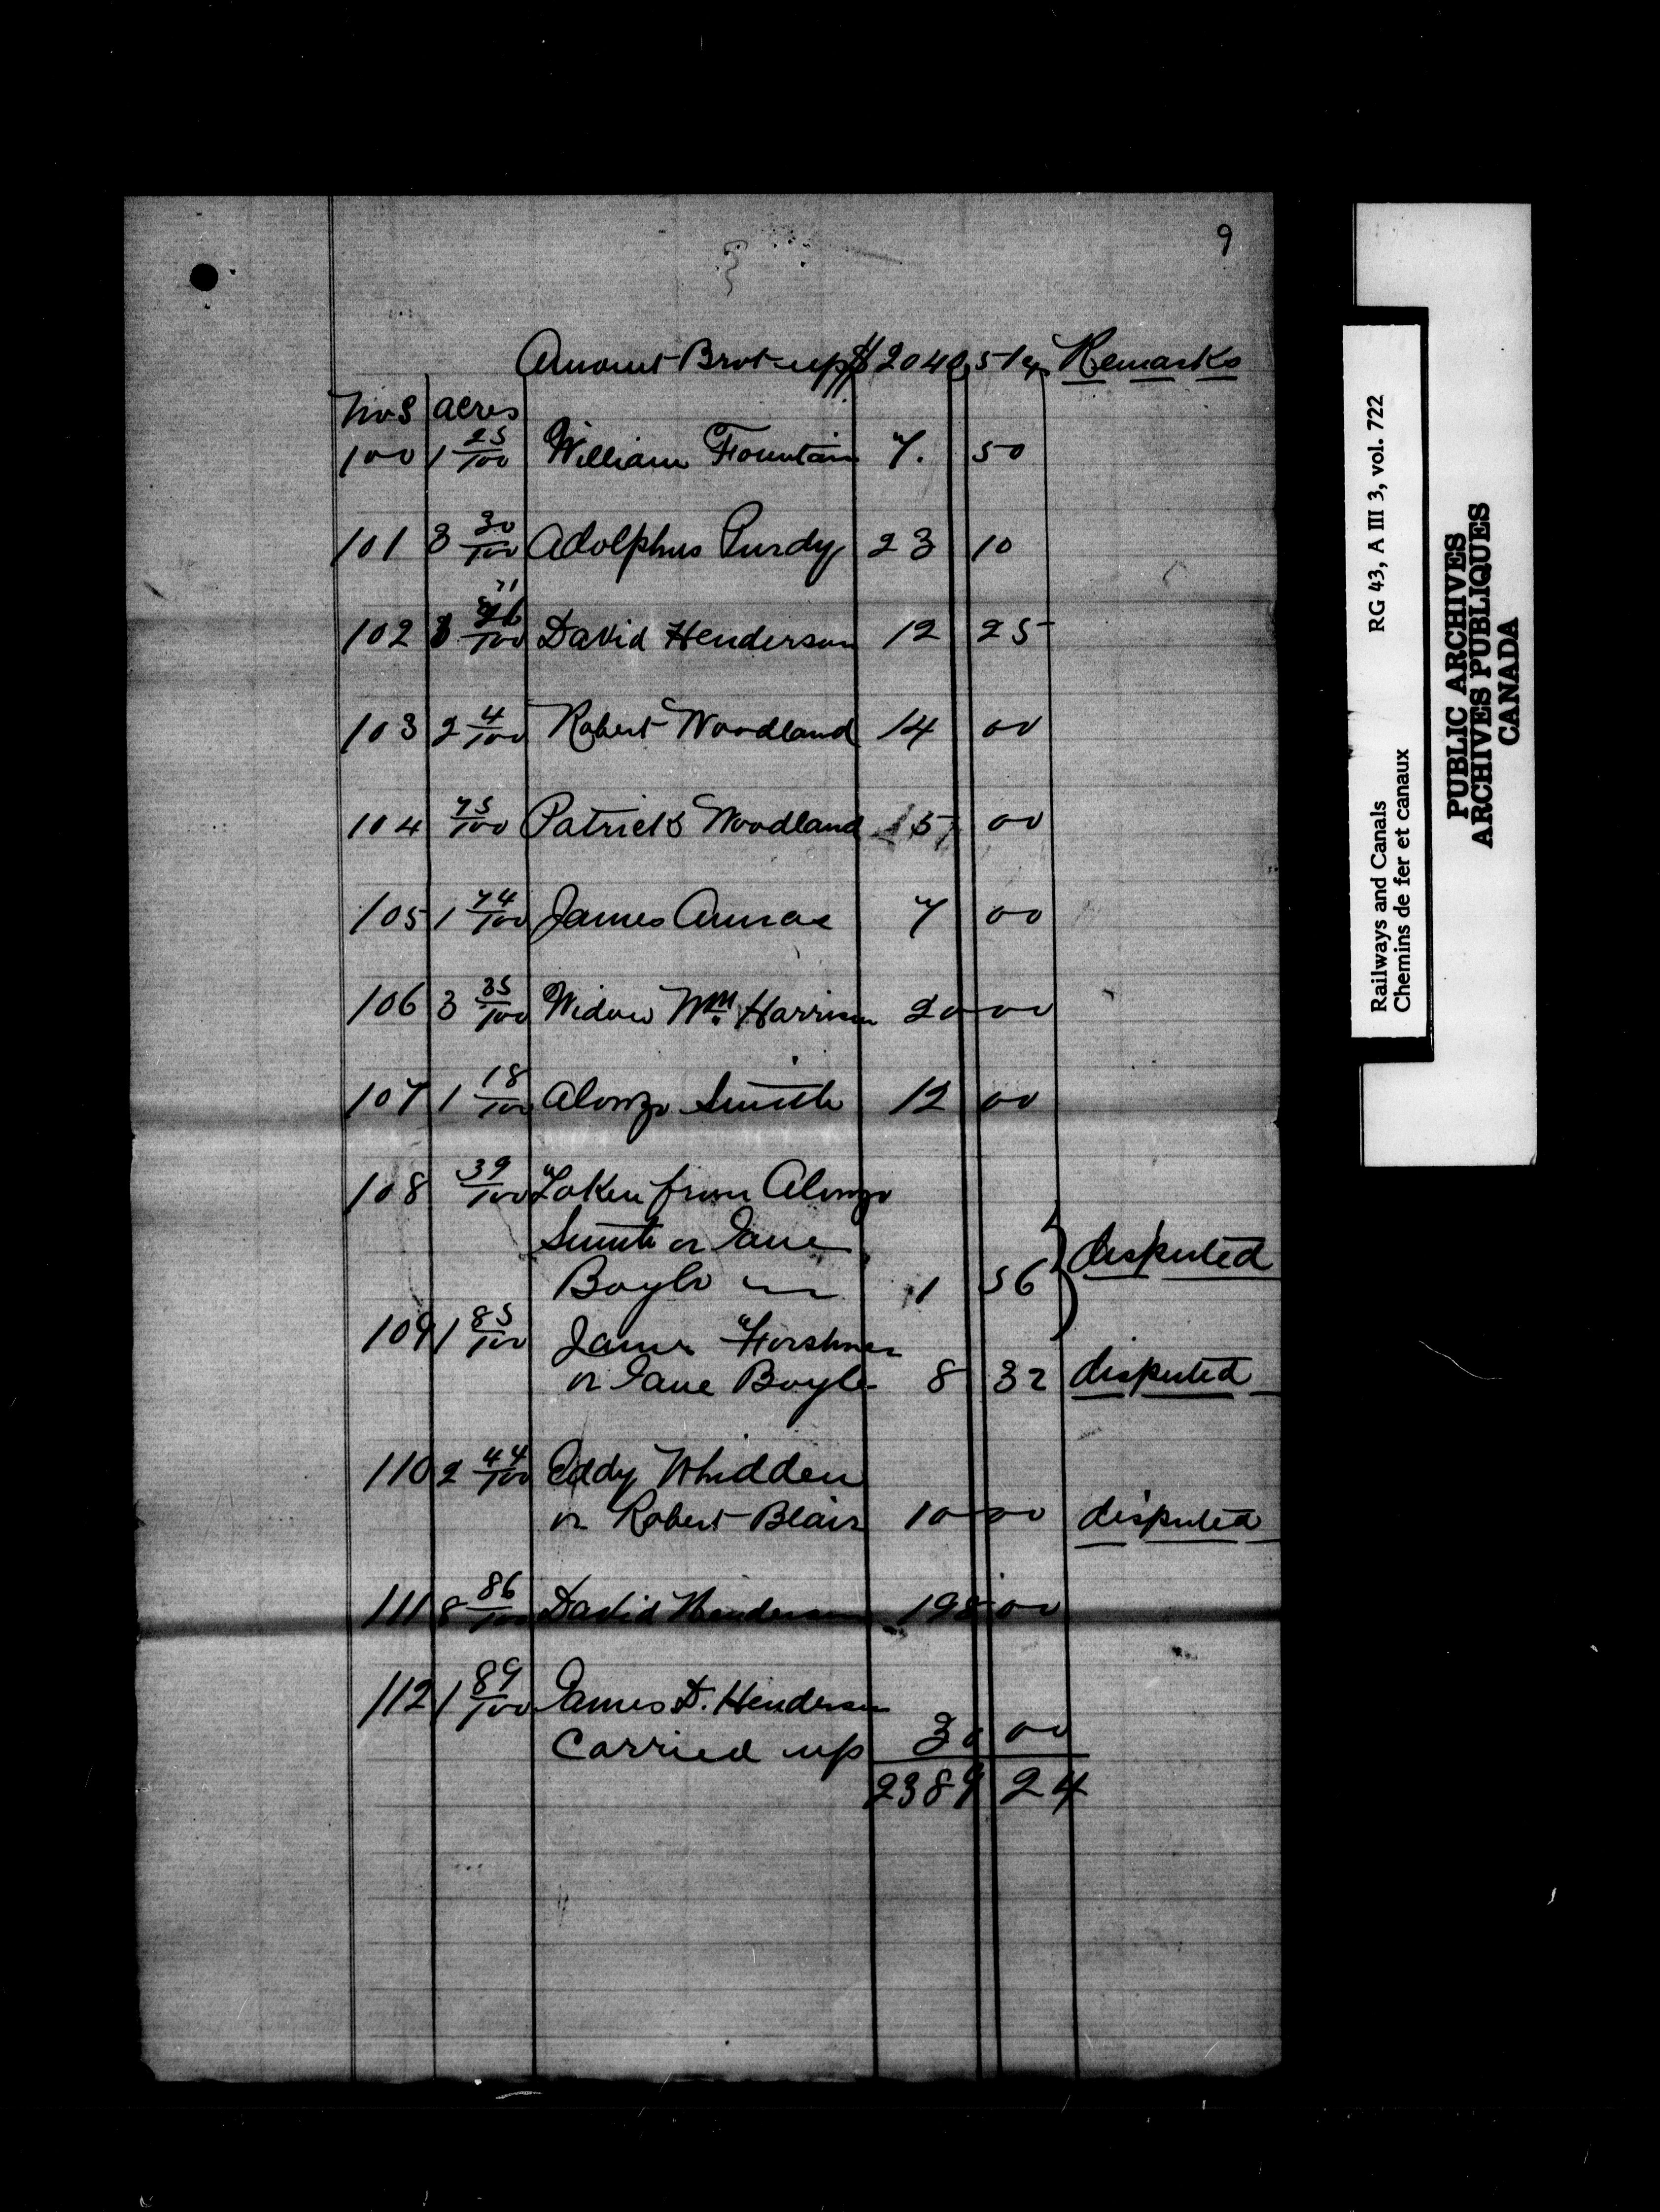 9
Amount Brot up $ 2040 51 cts Remarks
Nos acres
100 1 25/100 William Fountain 7. 50
101 3 30/100 Adolphus Purdy 23 10
102 David Henderson 12 25
103 2 4/100 Robert Woodland 14 00
104 75/100 Patrick Woodland 5 00
105 1 74/100 James 7 00
106 3 35/100 Widow Wm Harrison 20 00
107 1 18/100 Alonzo Smith 12 00
108 39/100 Taken from Alonzo
Smith or Jane
Boyle 1 56 disputed
109 1 85/100 James Horshner
or Jane Boyle 8 32 disputed
110 2 44/100 Eddy Whidden
or Robert Blair 10 00 disputed
111 8 86/100 David Henderson 198 00
112 1 89/100 James D. Henderson
Carried up 30 00
2389 24
Railways and Canals RG 43, A III 3, vol. 722
Chemins de fer et canaux
PUBLIC ARCHIVES
ARCHIVES PUBLIQUES
CANADA